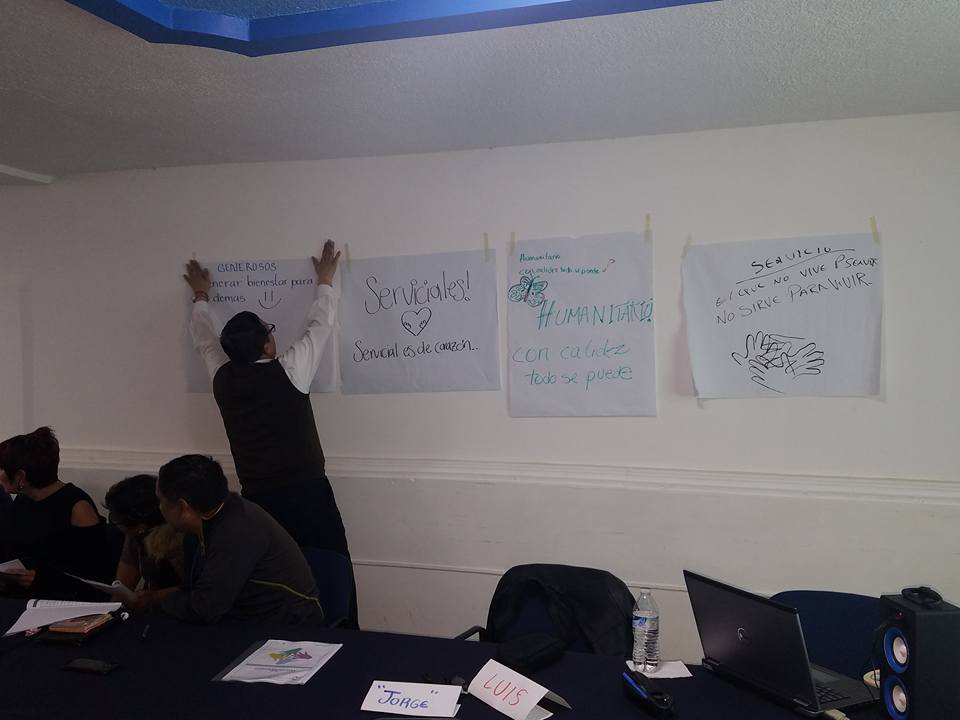 GENEROSOS
enerar bienestar para
demas
Serviciales!
Servicial es de corazón...
Humanitario
con calidez todo se puede
HUMANITARIO!
con calidez
todo se puede
SERVICIO
EL QUE NO VIVE P SERVIR
NO SIRVE PARA VIVIR
"JORGE"
LUIS